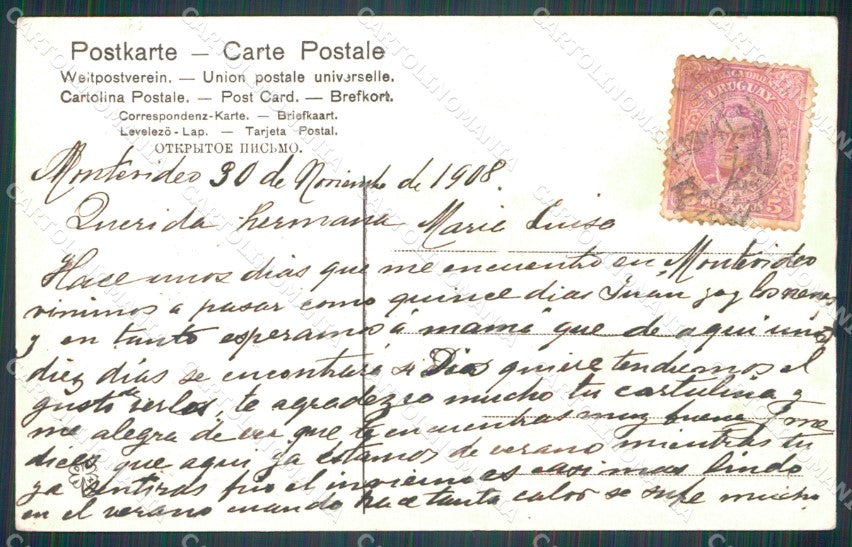 Postkarte — Carte Postale
Weltpostverein. — Union postale universelle.
Cartolina Postale. — Post Card. — Brefkort.
Correspondenz-Karte. — Briefkaart.
Levelezö-Lap. — Tarjeta Postal.
ОТКРЫТОЕ ПИСЬМО.
URUGUAY
5
Montevideo 30 de Noviembre de 1908.
Querida hermana Marie Luisa
Hace unos dias que me encuentro en Montevideo
vinimos a pasar como quince dias Juan yo y los nenes
y en tanto esperamos á mamá que de aqui unos
diez días se encontrará si Dios quiere tendremos el
gusto de verlos, te agradezco mucho tu cartulina y
me alegra de ver que te encuentras muy buena, me
dices que aqui ya estamos de verano mientras tu
ya sentiras frio el invierno es casi mas lindo
en el verano cuando hace tanta calor se sufre mucho
CARTOLINOMANIA